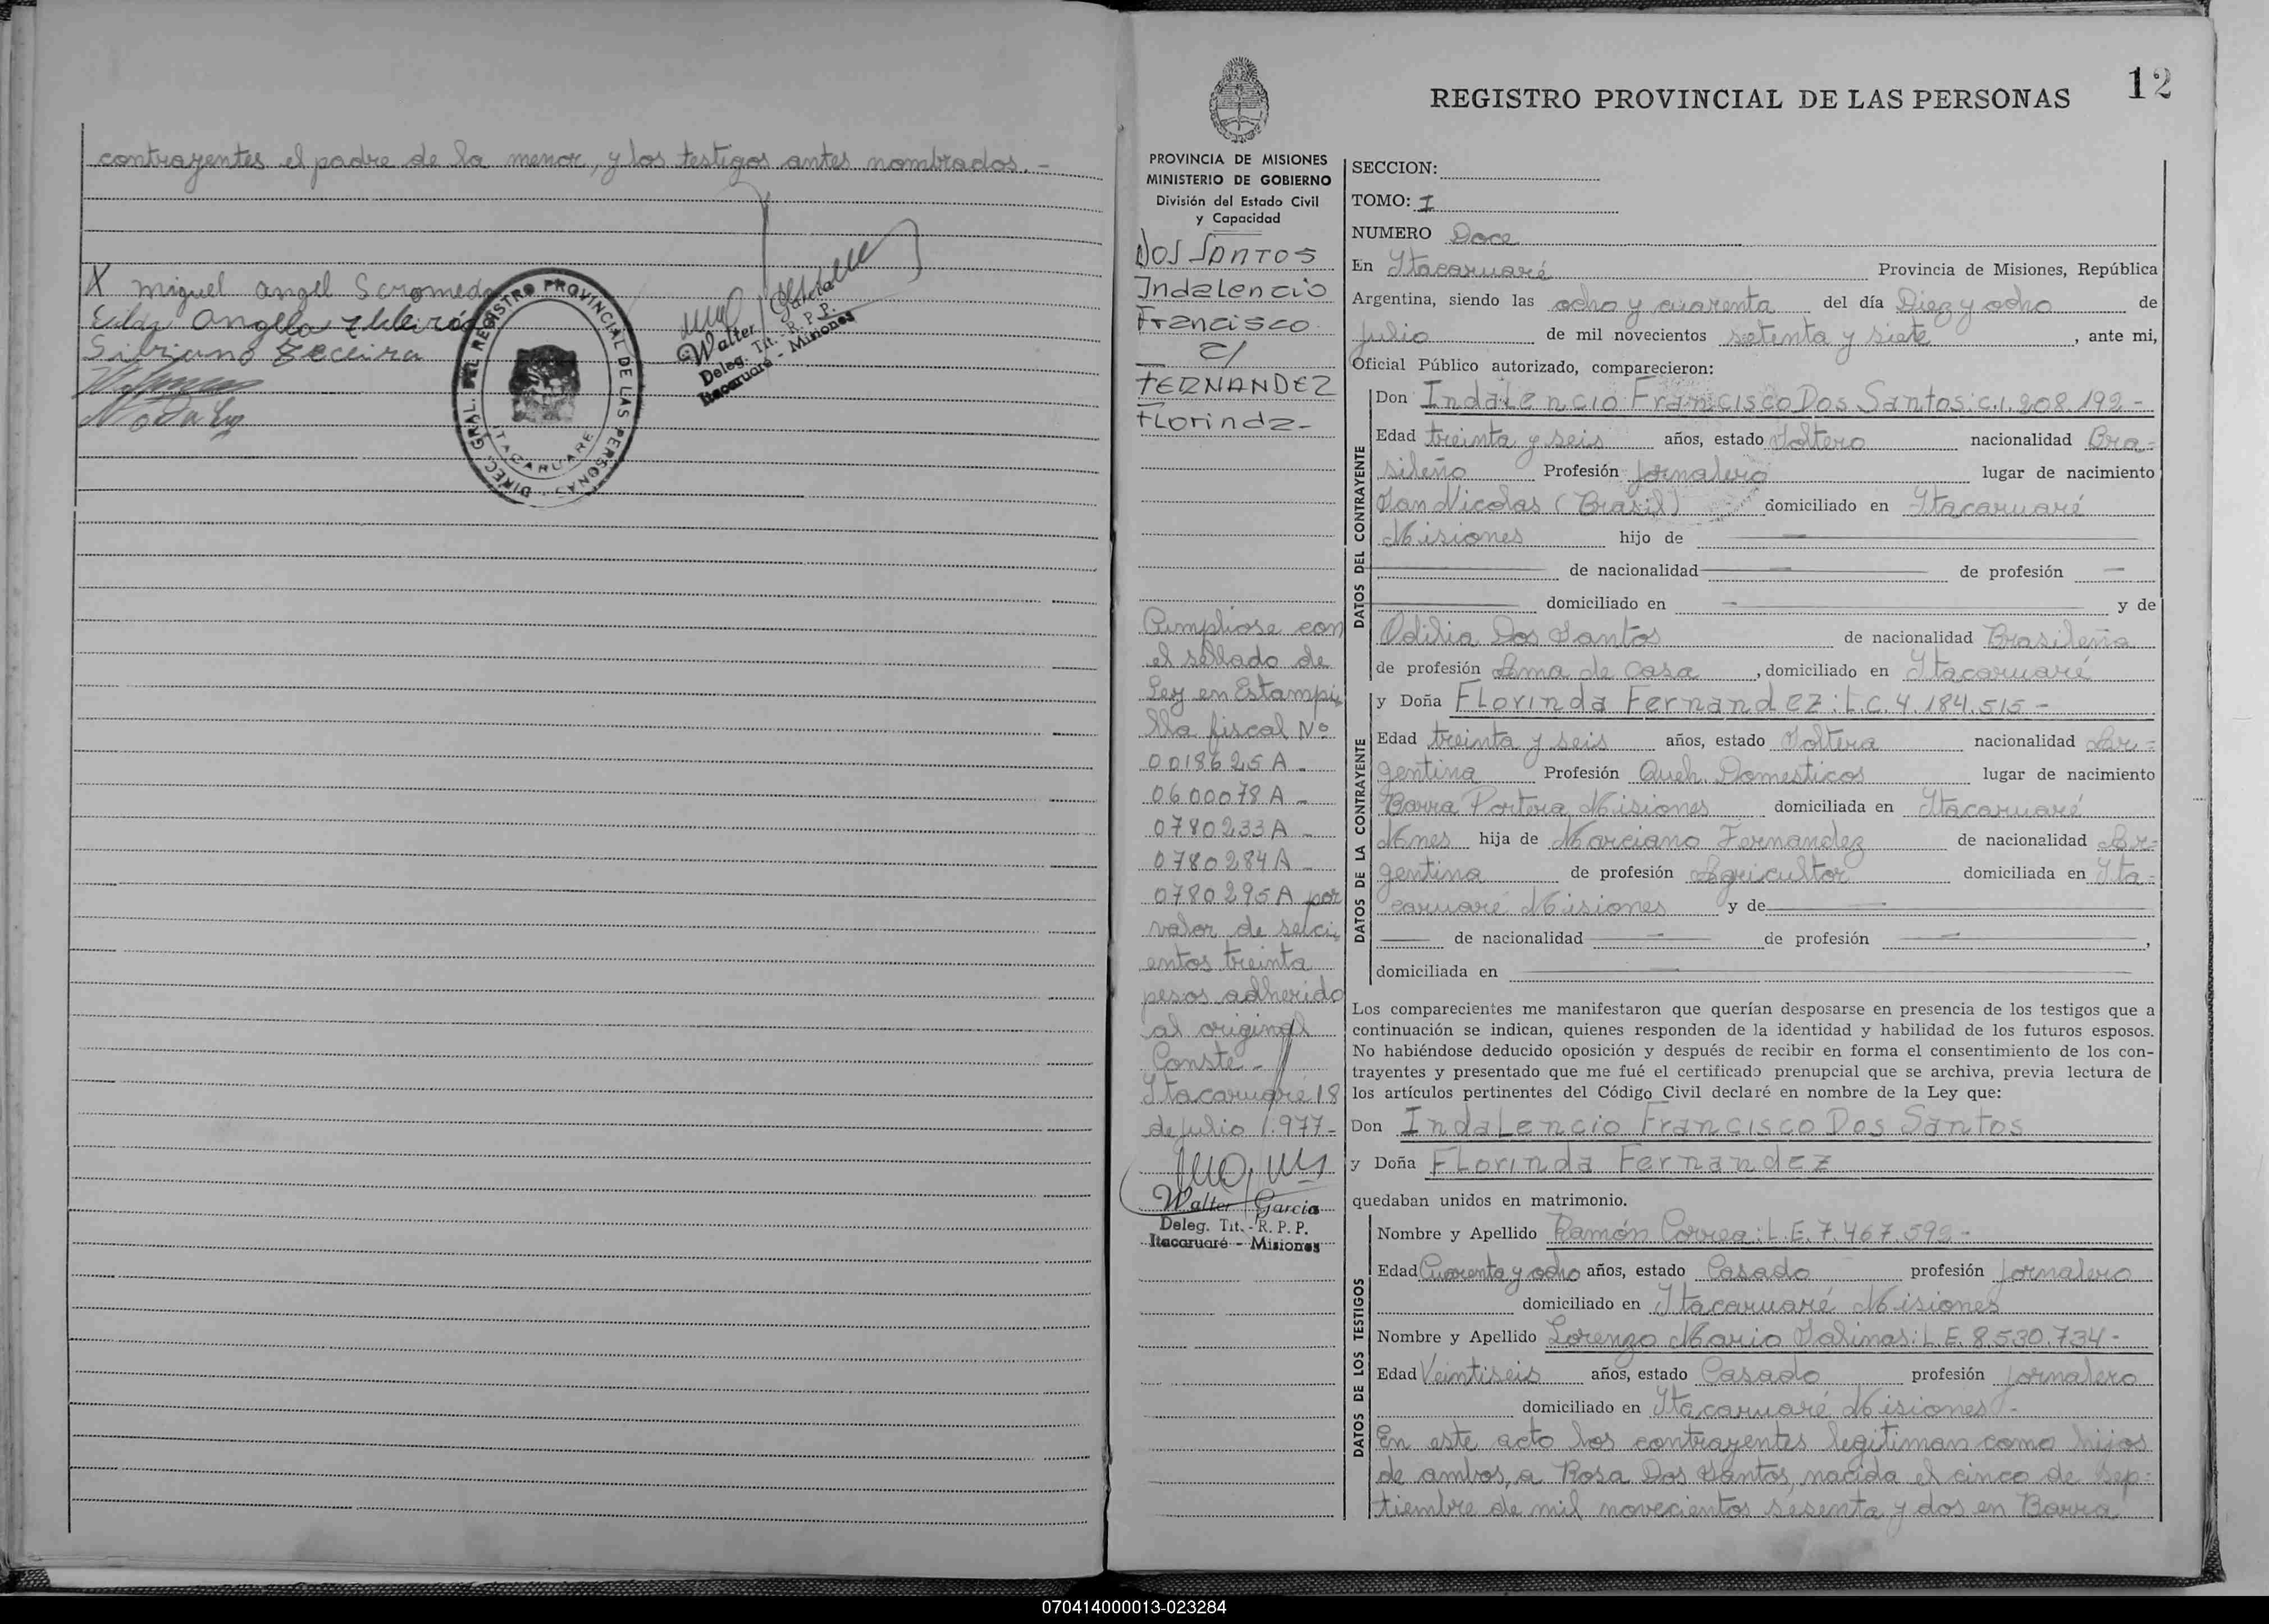 contrayentes el padre de la menor, y los testigos antes nombrados.-
X Miguel Angel
Angela
Walter Garcia
Deleg. Tit. R. P. P.
Itacaruaré - Misiones
DIREC. GRAL. DEL REGISTRO PROVINCIAL DE LAS PERSONAS
ITACARUARE
12
REGISTRO PROVINCIAL DE LAS PERSONAS
PROVINCIA DE MISIONES
MINISTERIO DE GOBIERNO
División del Estado Civil
y Capacidad
Dos Santos
Indalencio
Francisco
c/
FERNANDEZ
Florinda-
Cumpliose con
el sellado de
Ley en Estampi
lla fiscal Nº
0018625 A -
0600078 A -
0780233 A -
0780284 A -
0780295 A por
valor de seici
entos treinta
pesos adherido
al original
Conste -
Itacaruaré 18
de julio 1.977-
Walter Garcia
Deleg. Tit. - R. P. P.
Itacaruaré - Misiones
SECCION:
TOMO: I
NUMERO Doce
En Itacaruaré Provincia de Misiones, República
Argentina, siendo las ocho y cuarenta del día Diez y ocho de
julio de mil novecientos setenta y siete, ante mi,
Oficial Público autorizado, comparecieron:
DATOS DEL CONTRAYENTE
Don Indalencio Francisco Dos Santos: C.I. 208.192 -
Edad treinta y seis años, estado Soltero nacionalidad Bra=
sileño Profesión Jornalero lugar de nacimiento
San Nicolas (Brasil) domiciliado en Itacaruaré
Misiones hijo de
de nacionalidad de profesión
domiciliado en y de
Odilia Dos Santos de nacionalidad Brasileña
de profesión Ama de Casa, domiciliado en Itacaruaré
DATOS DE LA CONTRAYENTE
y Doña Florinda Fernandez: L.C. 4.184.515 -
Edad treinta y seis años, estado Soltera nacionalidad Ar=
gentina Profesión Queh. Domesticos lugar de nacimiento
Barra Portera Misiones domiciliada en Itacaruaré
Mnes hija de Marciano Fernandez de nacionalidad Ar=
gentina de profesión Agricultor domiciliada en Ita=
caruaré Misiones y de
de nacionalidad de profesión ,
domiciliada en
Los comparecientes me manifestaron que querían desposarse en presencia de los testigos que a
continuación se indican, quienes responden de la identidad y habilidad de los futuros esposos.
No habiéndose deducido oposición y después de recibir en forma el consentimiento de los con-
trayentes y presentado que me fué el certificado prenupcial que se archiva, previa lectura de
los artículos pertinentes del Código Civil declaré en nombre de la Ley que:
Don Indalencio Francisco Dos Santos
y Doña Florinda Fernandez
quedaban unidos en matrimonio.
DATOS DE LOS TESTIGOS
Nombre y Apellido Ramón Correa: L.E. 7.467.592 -
Edad Cuarenta y ocho años, estado Casado profesión Jornalero
domiciliado en Itacaruaré Misiones
Nombre y Apellido Lorenzo Mario Salinas: L.E. 8.530.734 -
Edad Veintiseis años, estado Casado profesión Jornalero
domiciliado en Itacaruaré Misiones -
En este acto los contrayentes legitiman como hijos
de ambos, a Rosa Dos Santos, nacida el cinco de Sep=
tiembre de mil novecientos sesenta y dos en Barra
070414000013-023284